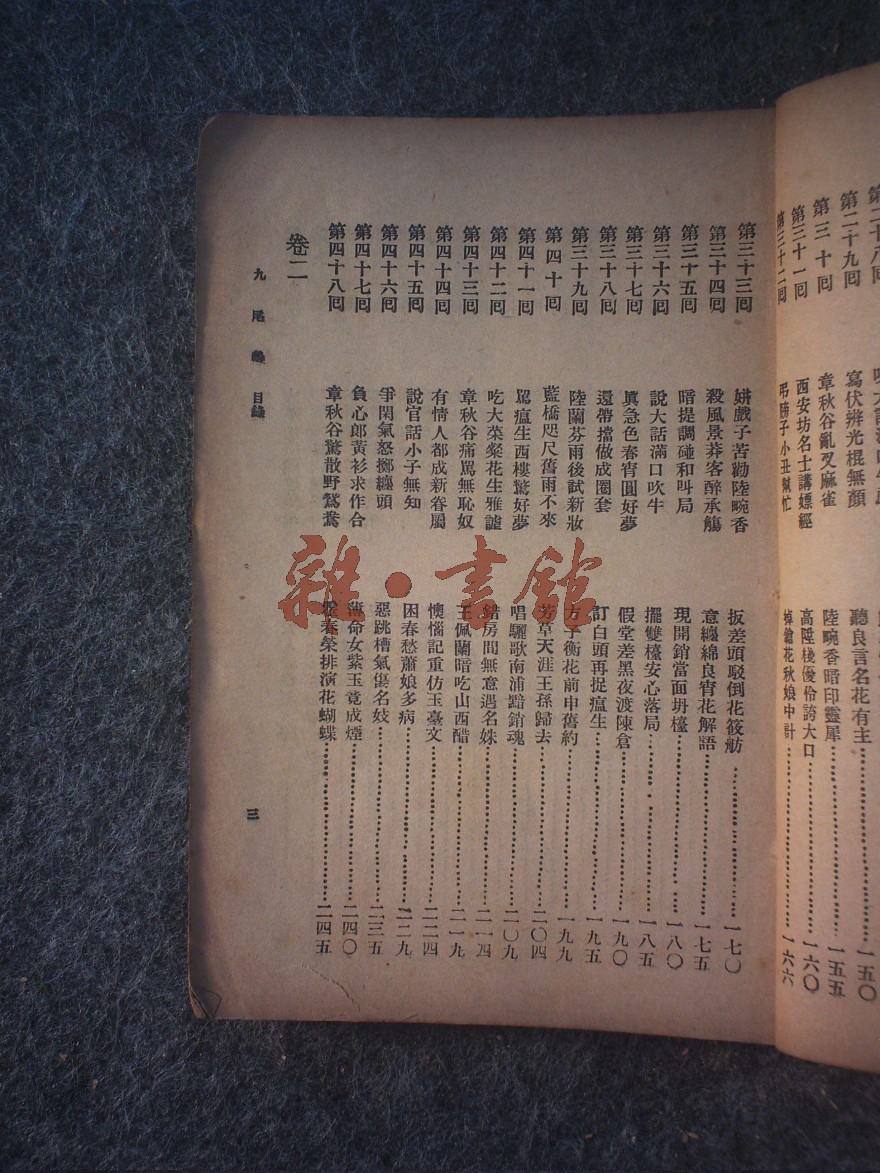 第二十九回 寫伏辨光棍無顏 聽良言名花有主 一五〇
第三十回 章秋谷亂叉麻雀 陸畹香暗印靈犀 一五五
第三十一回 西安坊名士講嫖經 高陞棧優伶誇大口 一六〇
第三十二回 弔膀子小丑幫忙 掉鎗花秋娘中計 一六六
第三十三回 姘戲子苦勸陸畹香 扳差頭駁倒花筱舫 一七〇
第三十四回 殺風景莽客醉承觴 意纏綿良宵花解語 一七五
第三十五回 暗提調碰和叫局 現開銷當面坍檯 一八〇
第三十六回 說大話滿口吹牛 擺雙檯安心落局 一八五
第三十七回 眞急色春宵圓好夢 假堂差黑夜渡陳倉 一九〇
第三十八回 還帶擋做成圈套 訂白頭再捉瘟生 一九五
第三十九回 陸蘭芬雨後試新妝 方子衡花前申舊約 一九九
第四十回 藍橋咫尺舊雨不來 芳草天涯王孫歸去 二〇四
第四十一回 罵瘟生西樓驚好夢 唱驪歌南浦黯銷魂 二〇九
第四十二回 吃大菜粲花生雅謔 錯房間無意遇名姝 二一四
第四十三回 章秋谷痛罵無恥奴 王佩蘭暗吃山西醋 二一九
第四十四回 有情人都成新眷屬 懊惱記重仿玉臺文 二二四
第四十五回 說官話小子無知 困春愁蕭娘多病 二二九
第四十六回 爭閑氣怒擲纏頭 惡跳槽氣傷名妓 二三五
第四十七回 負心郎黃衫求作合 薄命女紫玉竟成煙 二四〇
第四十八回 章秋谷驚散野鴛鴦 春榮排演花蝴蝶 二四五
卷二
九尾龜 目錄
三
雜·書館